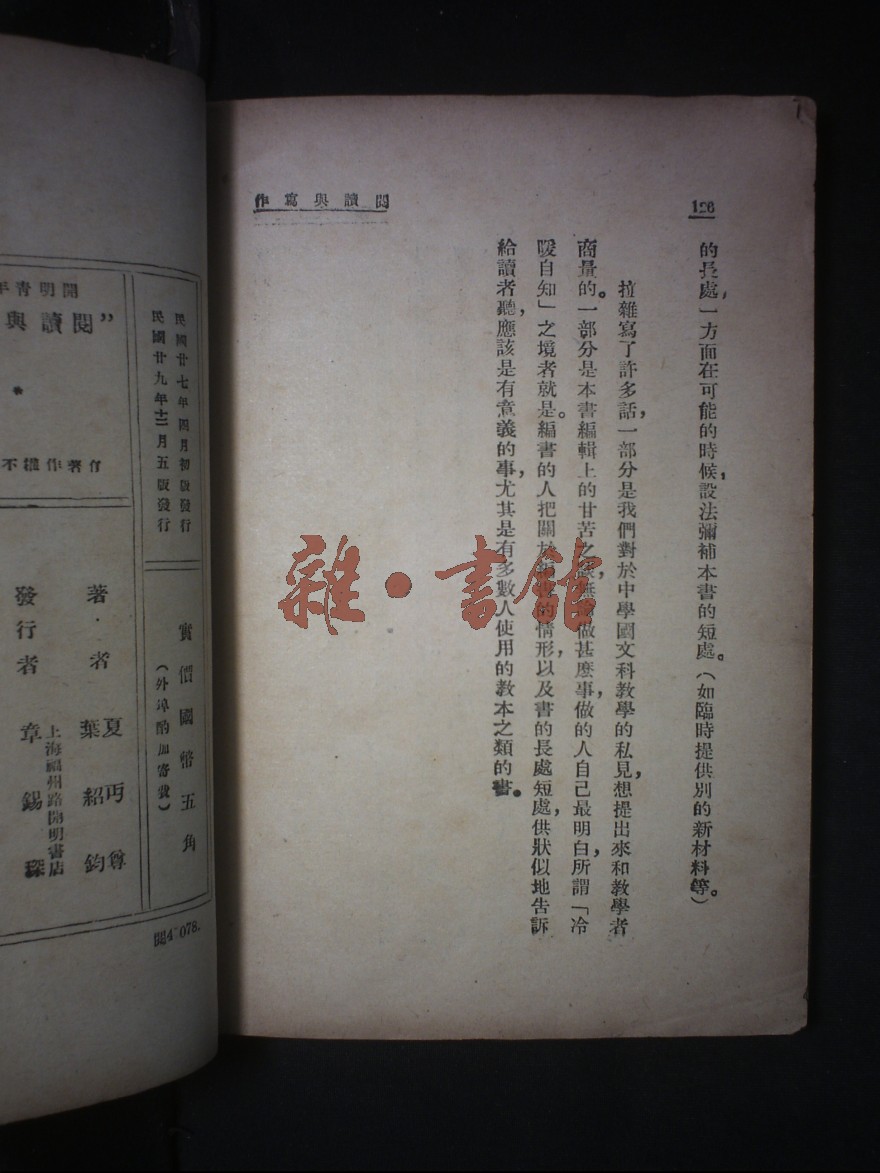 126
閱讀與寫作
的長處，一方面在可能的時候，設法彌補本書的短處。（如臨時提供別的新材料等。）
拉雜寫了許多話，一部分是我們對於中學國文科教學的私見，想提出來和教學者
商量的。一部分是本書編輯上的甘苦之做甚麽事，做的人自己最明白，所謂「冷
暖自知」之境者就是。編書的人把關於的情形，以及書的長處短處，供狀似地告訴
給讀者聽，應該是有意義的事，尤其是有多數人使用的教本之類的書。
雜·書館
開明青年
“閱讀與
有著作權不
民國廿七年四月初版發行
民國廿九年十二月五版發行
實價國幣五角
（外埠酌加寄費）
著者
夏丏尊
葉紹鈞
發行者
上海福州路開明書店
章錫琛